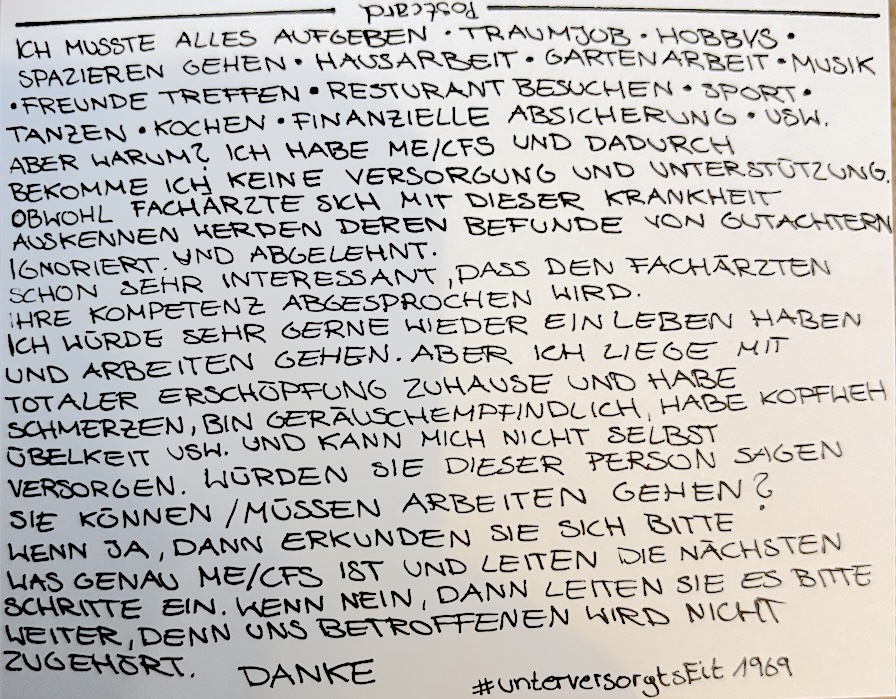 Postcard
ICH MUSSTE ALLES AUFGEBEN • TRAUMJOB • HOBBYS •
SPAZIEREN GEHEN • HAUSARBEIT • GARTENARBEIT • MUSIK
• FREUNDE TREFFEN • RESTURANT BESUCHEN • SPORT •
TANZEN • KOCHEN • FINANZIELLE ABSICHERUNG • USW.
ABER WARUM? ICH HABE ME/CFS UND DADURCH
BEKOMME ICH KEINE VERSORGUNG UND UNTERSTÜTZUNG.
OBWOHL FACHÄRZTE SICH MIT DIESER KRANKHEIT
AUSKENNEN WERDEN DEREN BEFUNDE VON GUTACHTERN
IGNORIERT. UND ABGELEHNT.
SCHON SEHR INTERESSANT, DASS DEN FACHÄRZTEN
IHRE KOMPETENZ ABGESPROCHEN WIRD.
ICH WÜRDE SEHR GERNE WIEDER EIN LEBEN HABEN
UND ARBEITEN GEHEN. ABER ICH LIEGE MIT
TOTALER ERSCHÖPFUNG ZUHAUSE UND HABE
SCHMERZEN, BIN GERÄUSCHEMPFINDLICH, HABE KOPFWEH
ÜBELKEIT USW. UND KANN MICH NICHT SELBST
VERSORGEN. WÜRDEN SIE DIESER PERSON SAGEN
SIE KÖNNEN / MÜSSEN ARBEITEN GEHEN?
WENN JA, DANN ERKUNDEN SIE SICH BITTE
WAS GENAU ME/CFS IST UND LEITEN DIE NÄCHSTEN
SCHRITTE EIN. WENN NEIN, DANN LEITEN SIE ES BITTE
WEITER, DENN UNS BETROFFENEN WIRD NICHT
ZUGEHÖRT. DANKE #unterversorgtsEit 1969